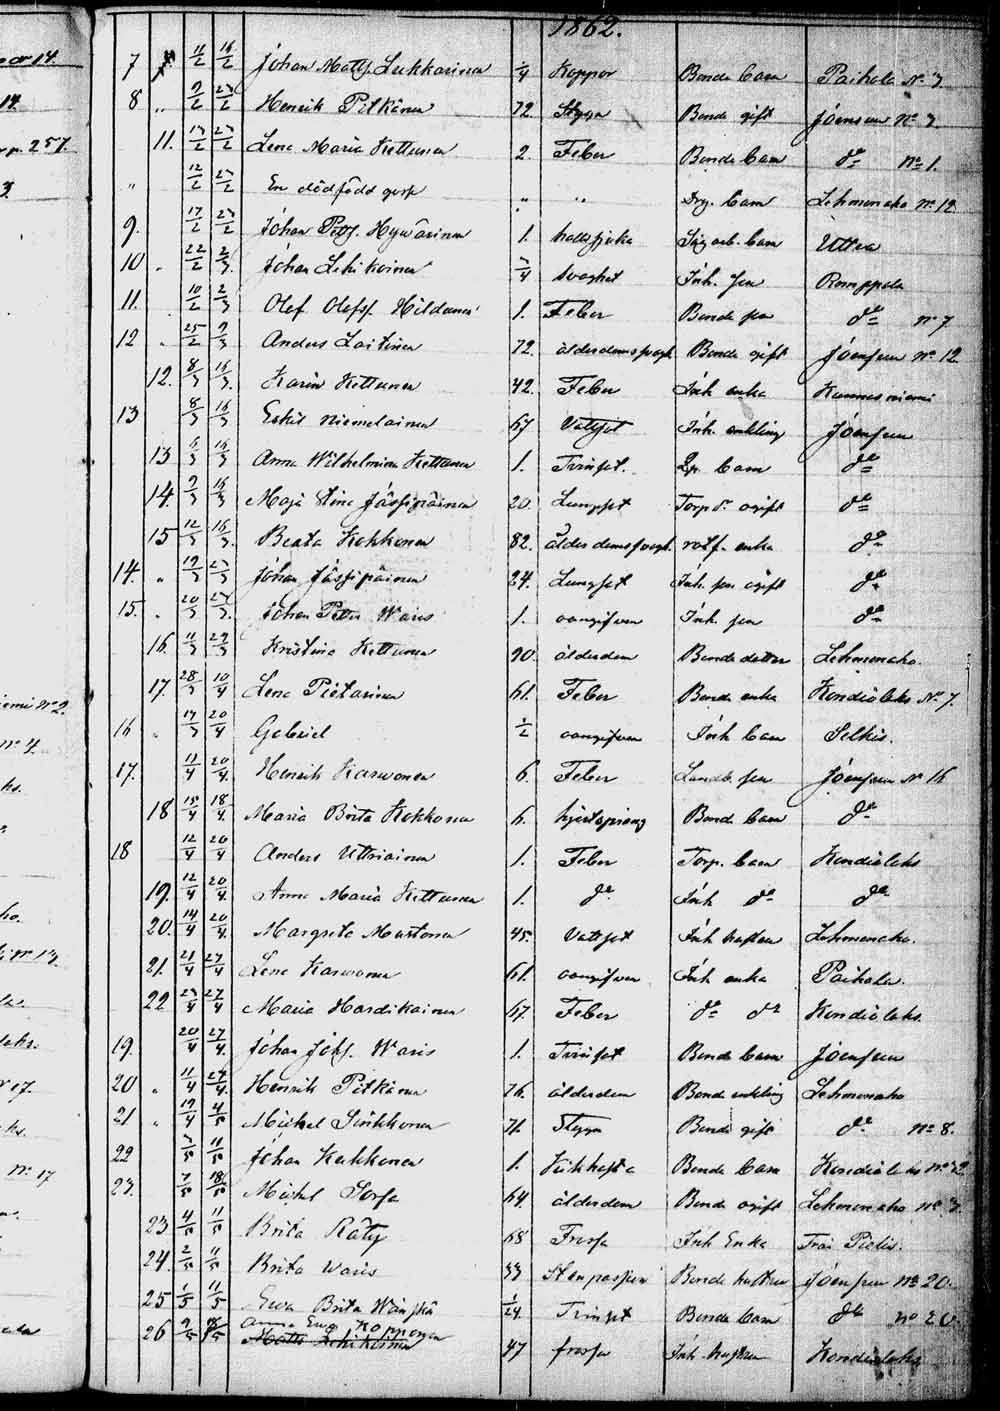 1862.
7 11/2 16/2 Johan Matts. Lukkarinen 1/4 Koppor Bonde barn Paihola No 3.
8 " 9/2 23/2 Henrik Pitkänen 72. Stygn Bonde gift Joensuu No 3
11. 13/2 23/2 Lena Maria Kettunen 2. Feber Bonde barn do No 1.
" 12/2 23/2 En dödfödd goss " " Drg. barn Lehmonaho No 12
9. 17/2 23/2 Johan Pett. Hyvärinen 1. halssjuka barn Uttra
10 " 22/2 2/3 Johan Lehikoinen 3/4 Svaghet Inh. son Romppala
11. 10/2 2/3 Olof Olofs. Hildunen 1. Feber Bonde son do No 7
12 " 25/2 9/3 Anders Laitinen 72. ålderdomssvagh. Bonde gift Joensuu No 12
12. 8/3 16/3 Karin Kettunen 42. Feber Inh enka Kunnasniemi
13 8/3 16/3 Eskil Niemelainen 67 Vattsot Inh. enkling Joensuu
13 16/3 Anna Wilhelmina Kettunen 1. Tvinsot. barn do
14. 9/3 16/3 Maja Stina Jässpäinen 20. Lungsot Torp dr ogift do
15 12/3 16/3 Beata Kokkonen 82. ålderdomssvagh. rotf. enka do
14. " 19/3 23/3 Johan Jässpäinen 24. Lungsot Inh. son ogift do
15. " 20/3 Johan Petter Waris 1. oangifven Inh. son do
16. 11/3 29/3 Kristina Kettunen 20. ålderdom Bonde dotter Lehmonaho.
17. 28/3 10/4 Lena Pietarinen 61. Feber Bonde enka Kondiolaks No 7.
16 " 17/3 20/4 Gabriel 1/2 oangifven Inh barn Selkis.
17. 11/4 20/4 Henrik Karvonen 6. Feber Landb. son Joensuu No 16
18 15/4 18/4 Maria Brita Kokkonen 6. hjertsprång Bonde barn do
18 12/4 20/4 Anders Uttriainen 1. Feber Torp. barn Kondiolaks
19. 12/4 20/4 Anna Maria Kettunen 1. do Inh do do
20. 14/4 20/4 Margreta Martonen 45. Vattsot Inh hustru Lehmonaho.
21. 21/4 27/4 Lena Karvonen 61. oangifven Inh enka Paihola.
22 23/4 27/4 Maria Hardikainen 67. Feber do do Kondiolaks.
19. 20/4 27/4 Johan Joh. Waris 1. Tvinsot Bonde barn Joensuu
20 " 11/4 27/4 Henrik Pitkänen 76. ålderdom Bonde enkling Lehmonaho
21 " 19/4 4/5 Michel Sirkkonen 71. Stygn Bonde gift do No 8.
22 3/5 11/5 Johan Kukkonen 1. Kikhosta Bonde barn Kondiolaks No 22
23. 7/5 18/5 Michel Sorsa 64. ålderdom Bonde ogift Lehmonaho No 3.
23 4/5 11/5 Brita Räty 68 Frossa Inh Enka Från Pielis.
24. 2/5 11/5 Brita Waris 33 Stenpassion Bonde hustru Joensuu No 20.
25 1/5 11/5 Ewa Brita Wänskä 1/24. Tvinsot Bonde barn do No 20.
26 9/5 18/5 Anna Ewa Kopponen Matts Lehikoinen 47 frossa Inh. hustru Kondiolaks